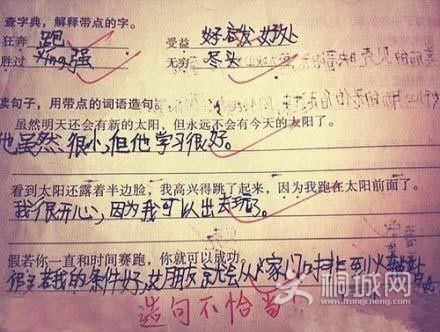 查字典，解释带点的字。
狂奔 跑 受益 好启发、好处
胜过 xing强 无穷 尽头
读句子，用带点的词语造句。
虽然明天还会有新的太阳，但永远不会有今天的太阳了。
他虽然很小，但他学习很好。
看到太阳还露着半边脸，我高兴得跳了起来，因为我跑在太阳前面了。
我很开心，因为我可以出去玩了。
假若你一直和时间赛跑，你就可以成功。
假若我的条件好，女朋友就会从家门口排到火车站
造句不恰当
桐城网
www.itongcheng.com